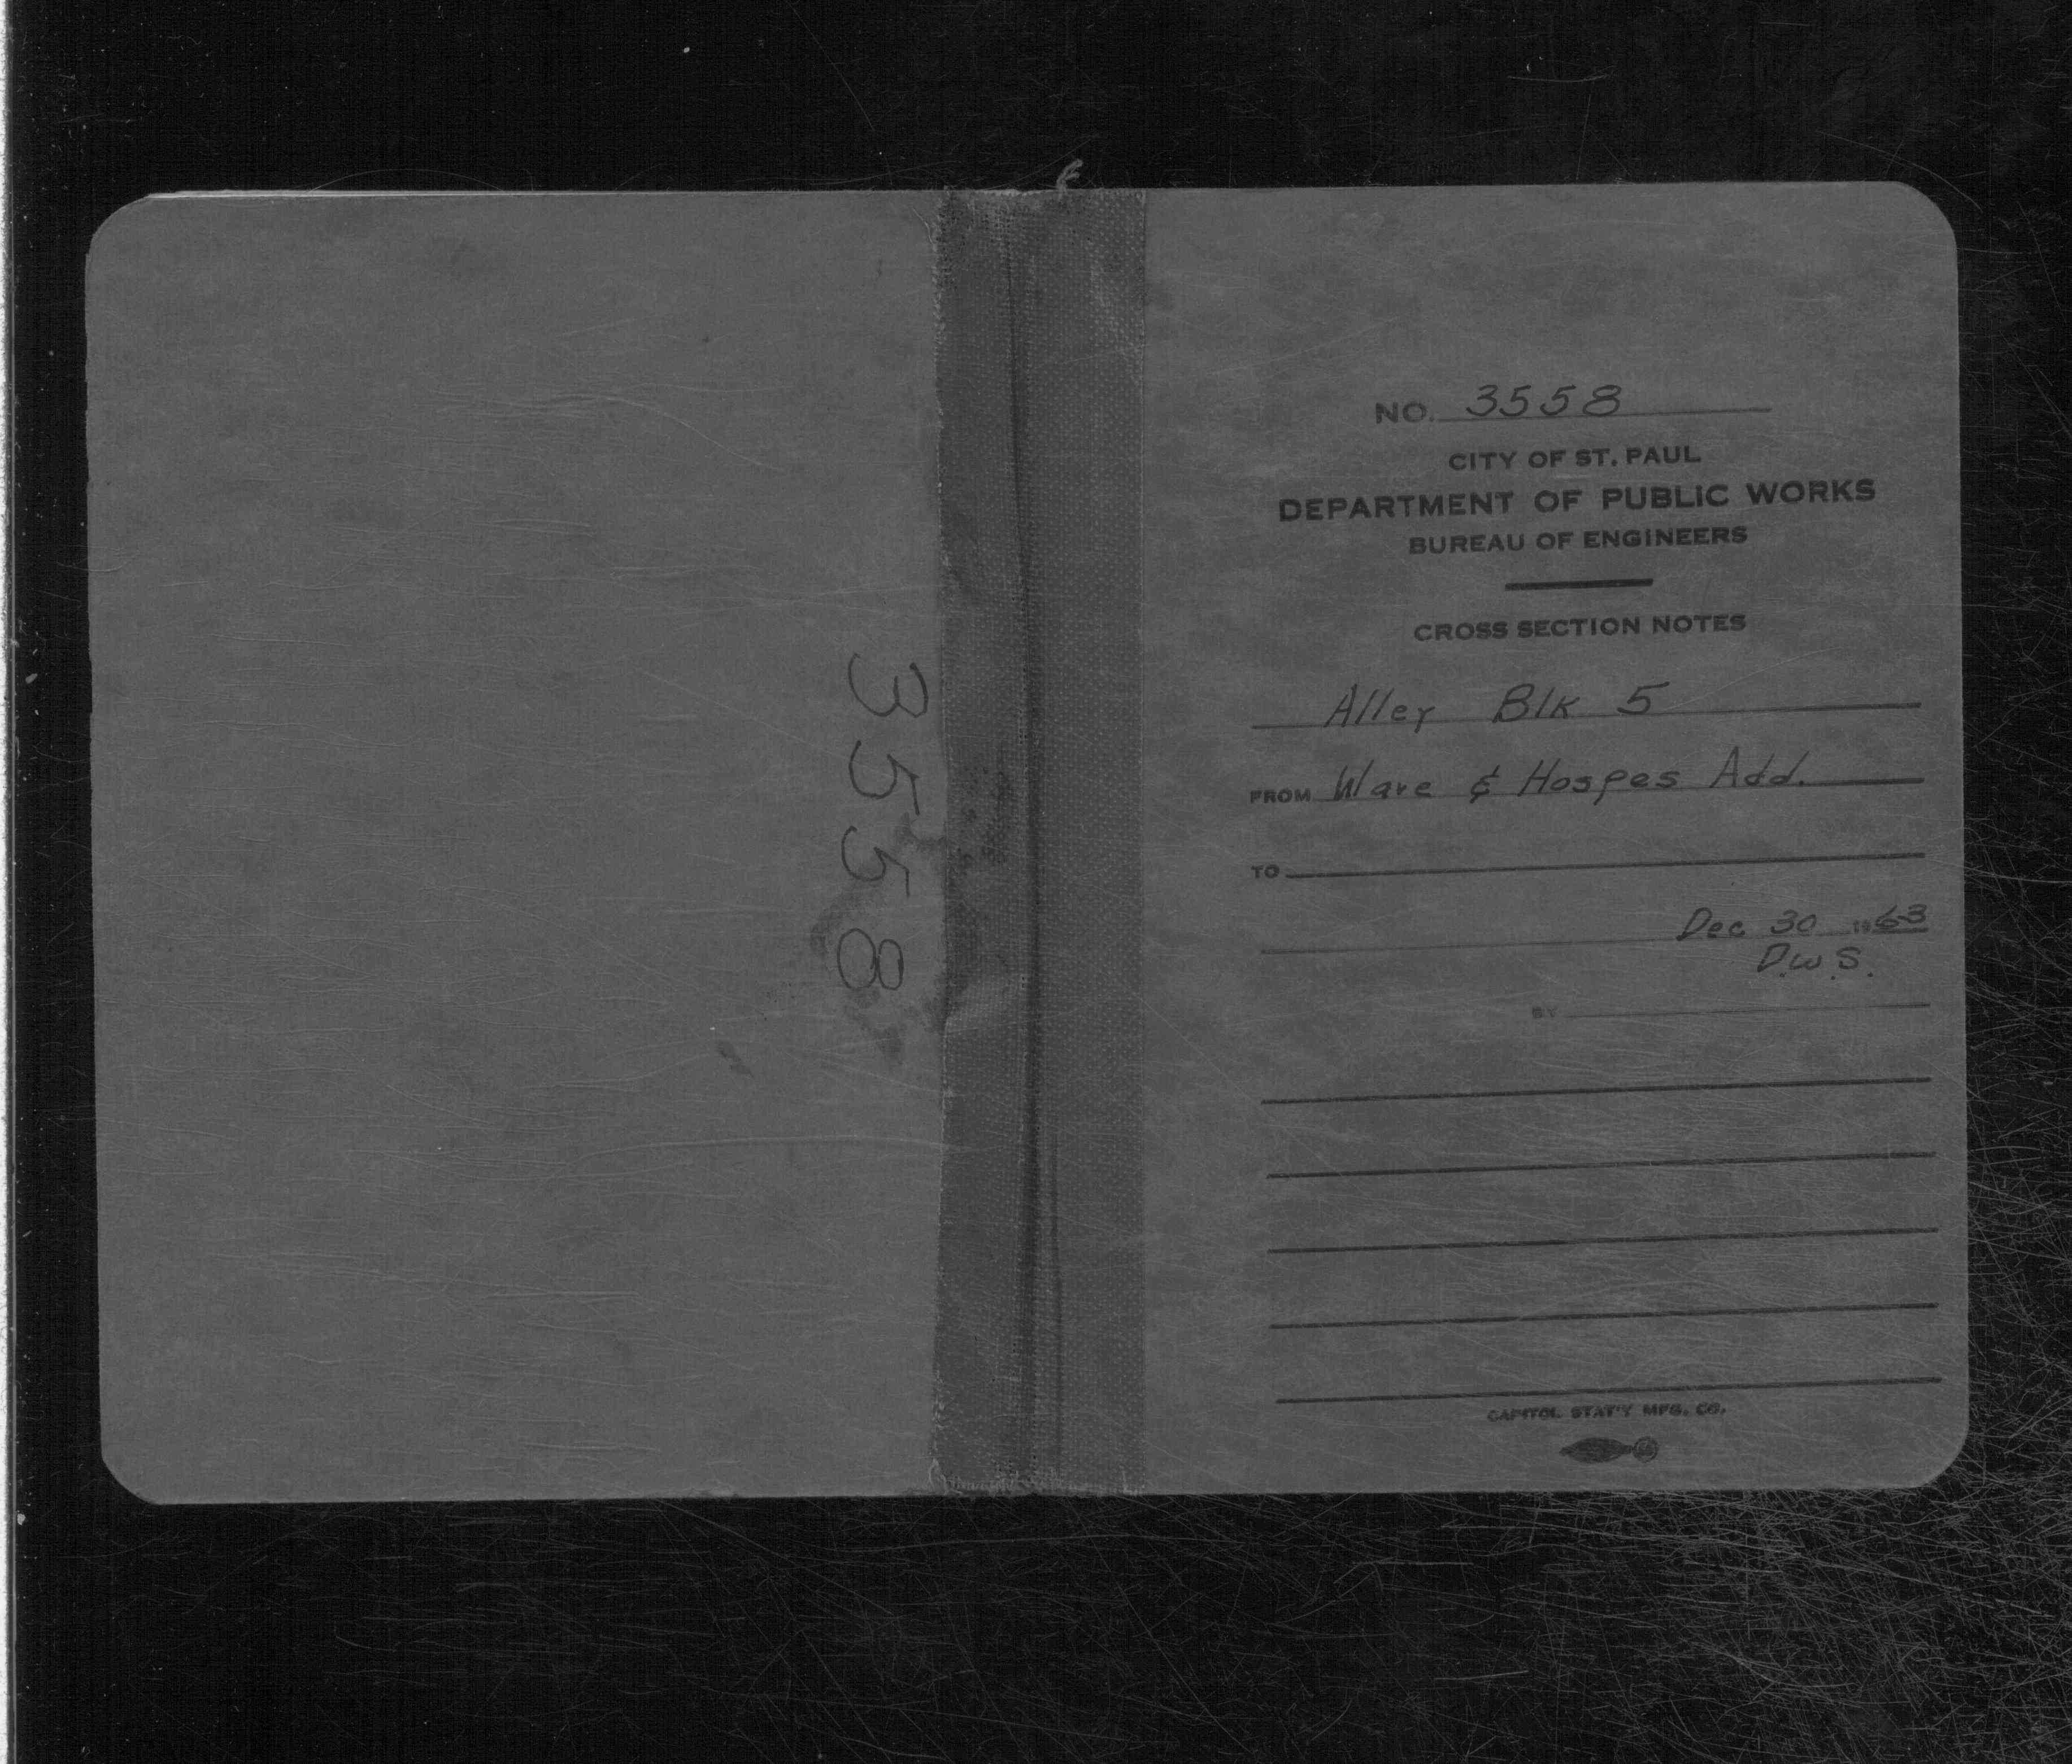 3558
NO. 3558
CITY OF ST. PAUL
DEPARTMENT OF PUBLIC WORKS
BUREAU OF ENGINEERS
CROSS SECTION NOTES
Alley Blk 5
FROM Ware & Hospes Add.
TO
Dec 30 1963
D.W.S.
BY
CAPITOL STAT'Y MFG. CO.